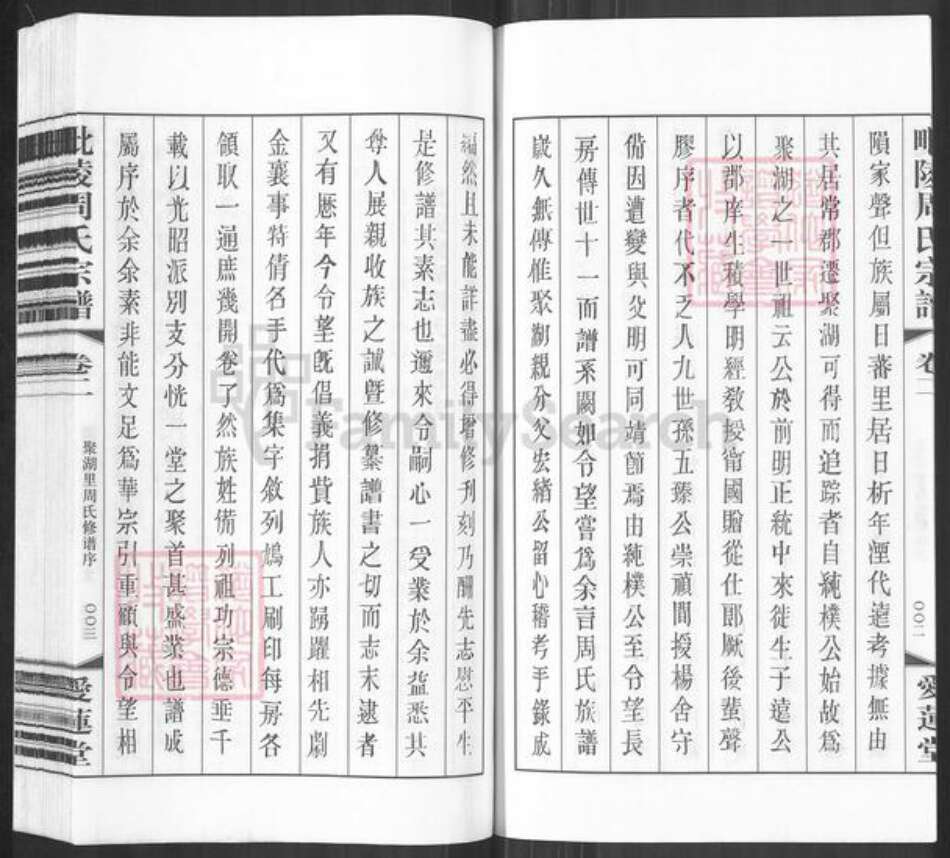 毗陵周氏宗譜 卷二 〇〇二 愛蓮堂
隕家聲但族屬日蕃里居日析年湮代遠考據無由
其居常郡遷聚湖可得而追踪者自純樸公始故爲
聚湖之一世祖云公於前明正統中來徙生子遠公
以郡庠生積學明經教授衛國贈從仕郎厥後蜚聲
膠序者代不乏人九世孫五臻公崇禎間授楊舍守
備因遭變與父明可同靖節焉由純樸公至令望長
房傳世十一而譜系闕如令望嘗爲余言周氏族譜
歲久無傳惟聚湖親分父宏緒公留心稽考手錄成
編然且未能詳盡必得增修刊刻乃酬先志慰平生
是修譜其素志也邇來令嗣心一受業於余益悉其
尊人展親收族之誠曁修纂譜書之切而志未逮者
又有歷年今令望旣倡義捐貲族人亦踴躍相先劇
金襄事特倩名手代爲集字敘列鳩工刷印每房各
領取一通庶幾開卷了然族姓備列祖功宗德垂千
載以光昭派別支分恍一堂之聚首甚盛業也譜成
屬序於余余素非能文足爲華宗引重顧與令望相
毗陵周氏宗譜 卷二 聚湖里周氏修谱序 〇〇三 愛蓮堂
FamilySearch